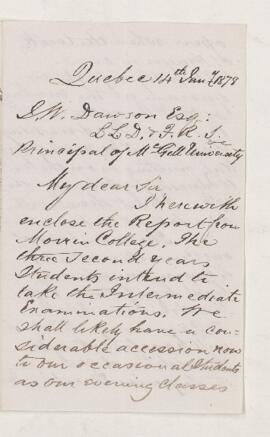 Quebec 14th Jany 1878
J. W. Dawson Esq:
LLD, & F. R. S. &c
Principal of McGill University
My dear Sir
I herewith
enclose the Report from
Morrin College. The
three Second Years
Students intend to
take the Intermediate
Examinations. We
shall likely have a con-
siderable accession now
to our occasional Students
as our evening classes